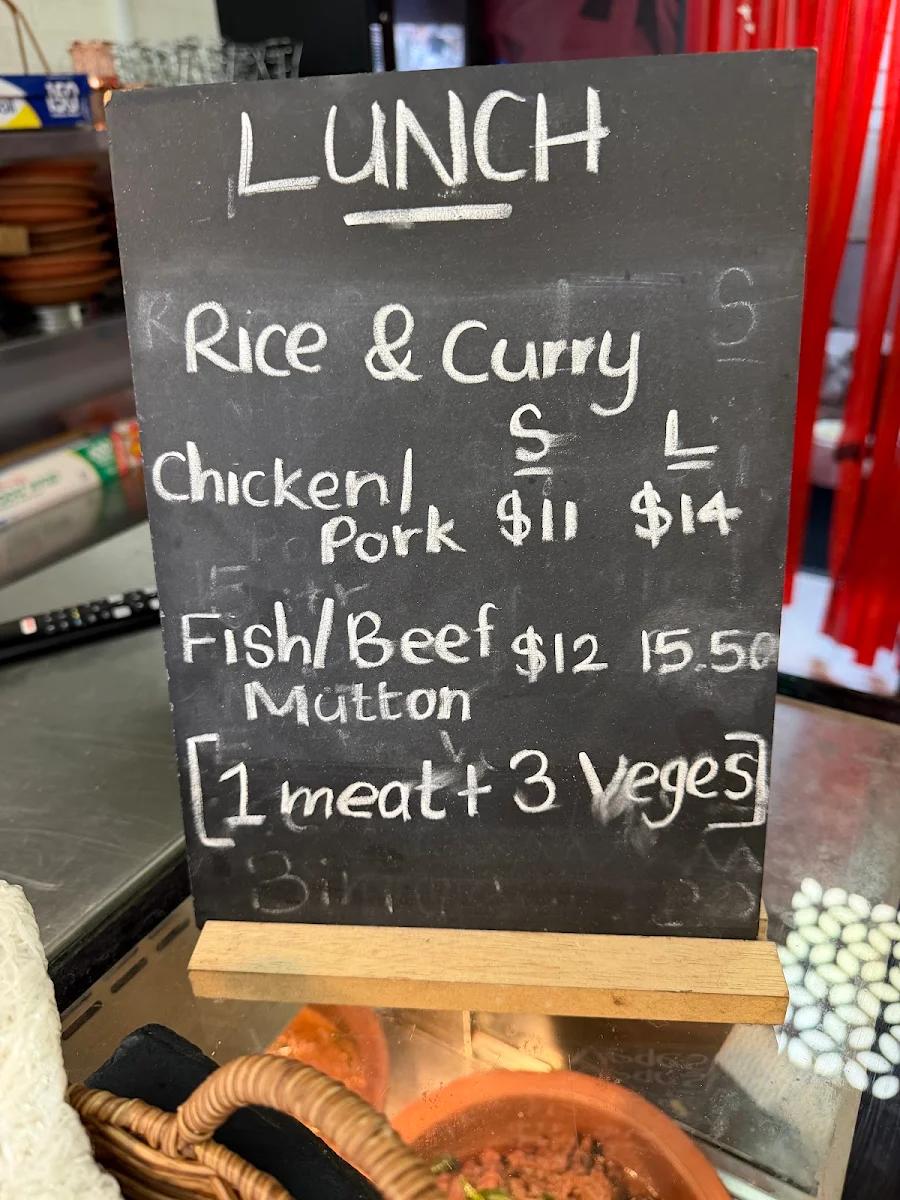 LUNCH
Rice & Curry
S L
Chicken/ $11 $14
Pork
Fish/Beef $12 15.50
Mutton
[1 meat + 3 Veges]